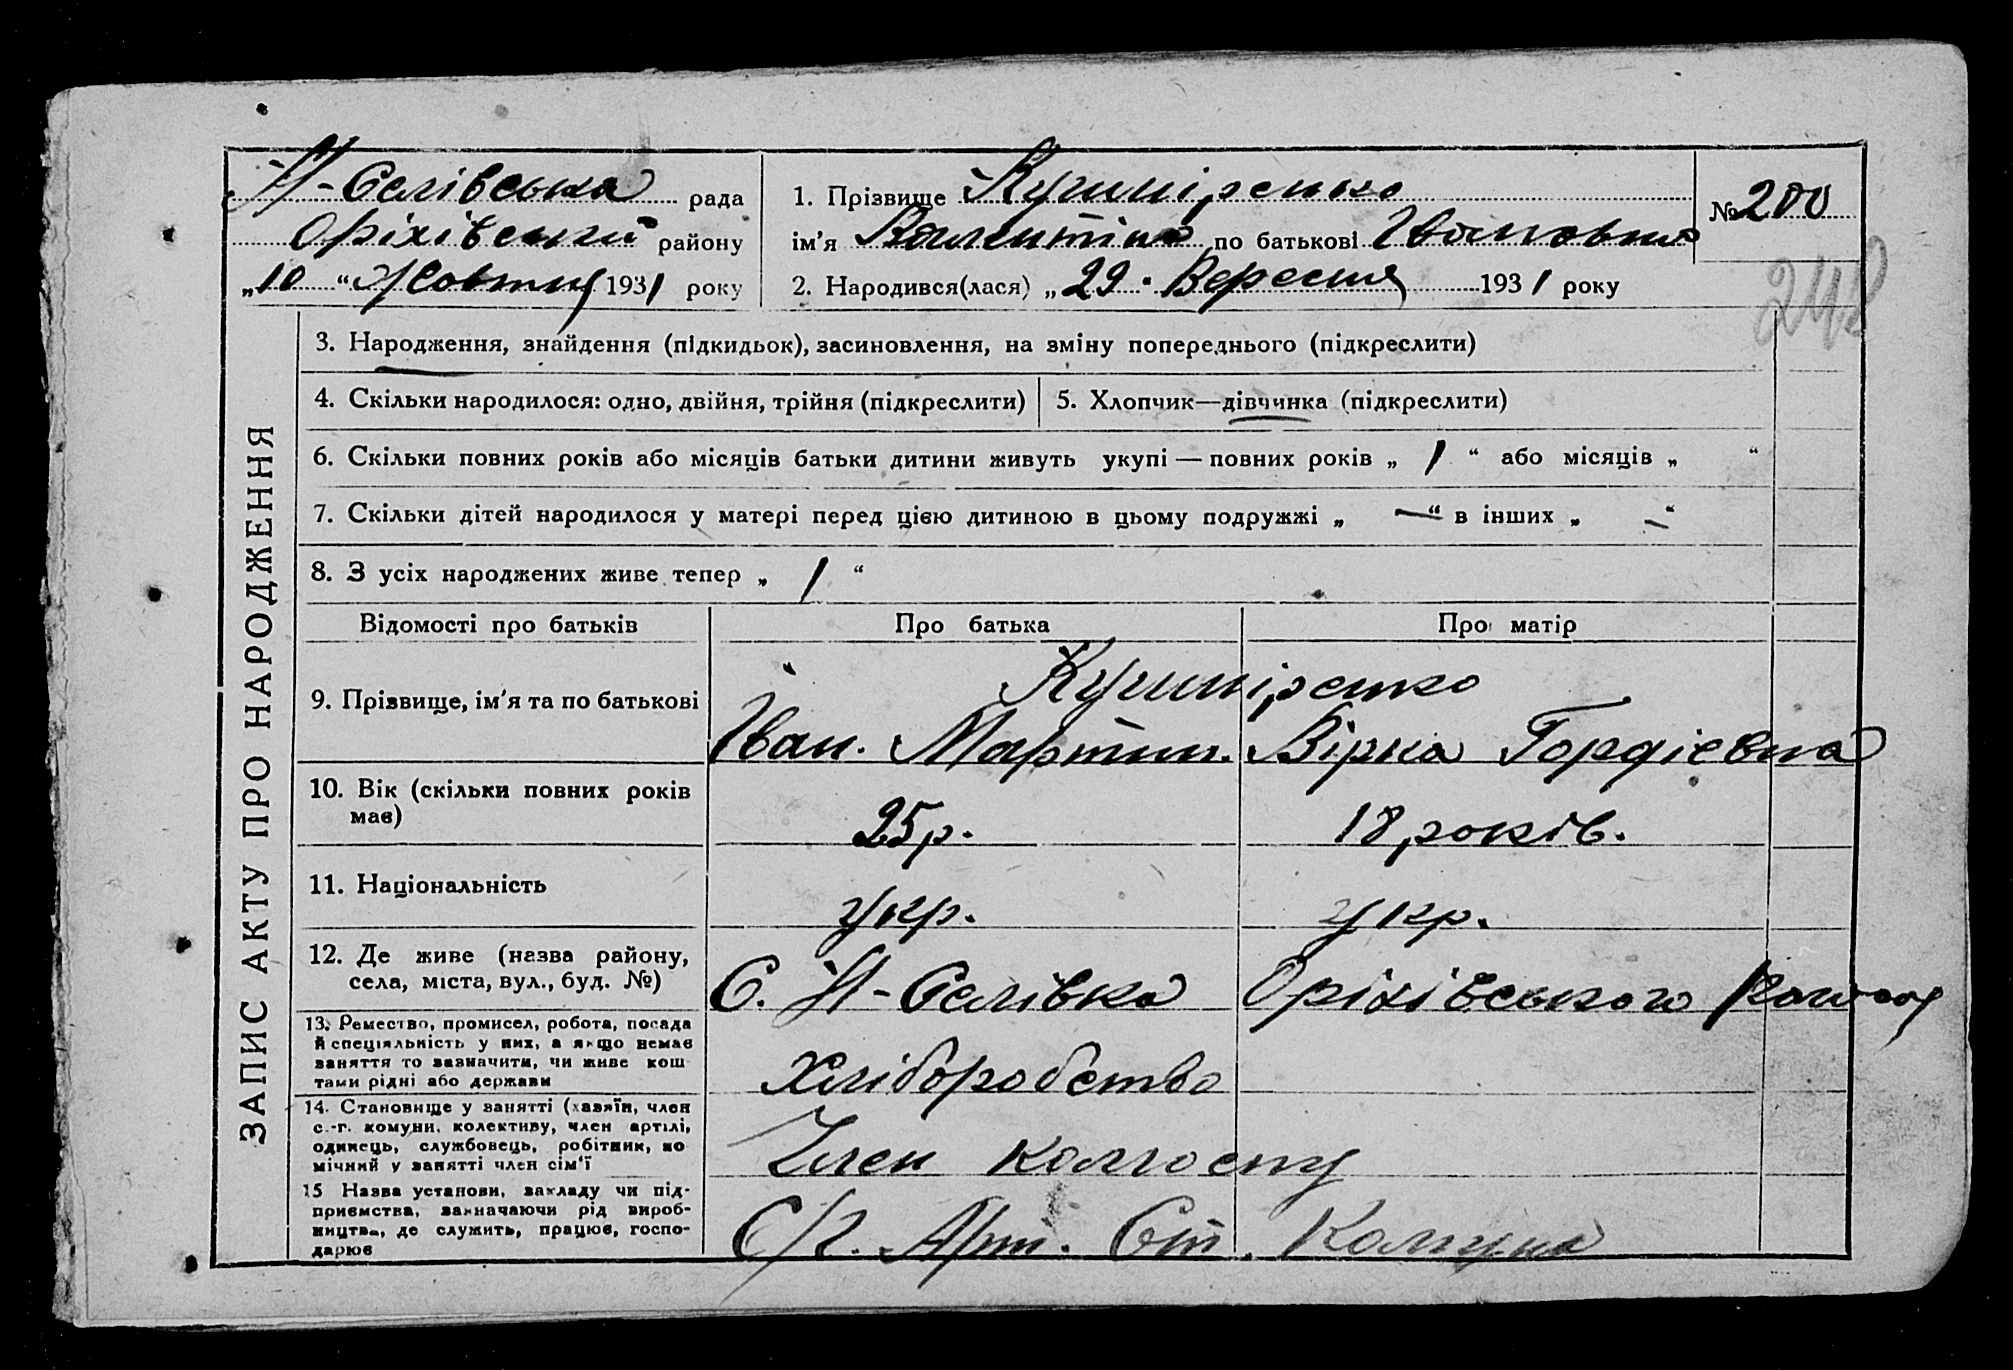 Н-Єслівська рада
Оріхівський району
„10“ Жовтня 1931 року
1. Прізвище Кушніренко
ім'я Валентина по батькові Івановна
2. Народився(лася) „29. Вересня 1931 року
№ 200
242
ЗАПИС АКТУ ПРО НАРОДЖЕННЯ
3. Народження, знайдення (підкидьок), засиновлення, на зміну попереднього (підкреслити)
4. Скільки народилося: одно, двійня, трійня (підкреслити)
5. Хлопчик—дівчинка (підкреслити)
6. Скільки повних років або місяців батьки дитини живуть укупі — повних років „ 1 “ або місяців „ “
7. Скільки дітей народилося у матері перед цією дитиною в цьому подружжі „ — “ в інших „ — “
8. З усіх народжених живе тепер „ 1 “
Відомості про батьків
Про батька
Про матір
9. Прізвище, ім'я та по батькові
Кушніренко
Іван. Мартин. Вірка Гордієвна
10. Вік (скільки повних років
має)
25р. 18 років.
11. Національність
укр. укр.
12. Де живе (назва району,
села, міста, вул., буд. №)
С. Н-Єслівка Оріхівського
13. Ремество, промисел, робота, посада
й спеціяльність у них, а якщо немає
заняття то зазначити, чи живе кош
тами рідні або держави
Хліборобство
14. Становище у занятті (хазяїн, член
с.-г. комуни, колективу, член артілі,
одинець, службовець, робітник, по
мічний у занятті член сім'ї
Член колгоспу
15 Назва установи, закладу чи під-
приємства, зазначаючи рід вироб-
ництва, де служить, працює, госпо-
дарює
С/Г. Арт. Ст. Комуна